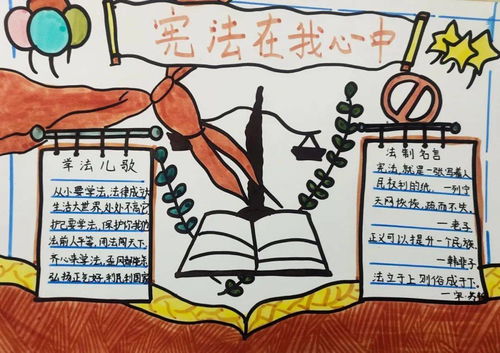 宪法在我心中
学法儿歌
从小要学法,法律成
生活大世界,处处不离它
护己要学法,保护你我他
法前人平等,闯法闯天下
齐心来学法,
弘扬正气好,利民利国家
法制名言
宪法,就是一张写着人
民权利的纸。—列宁
天网恢恢,疏而不失。
—老子
正义可以提升一个民族
—韩非子
法立于上则俗成于下。
—宋·苏